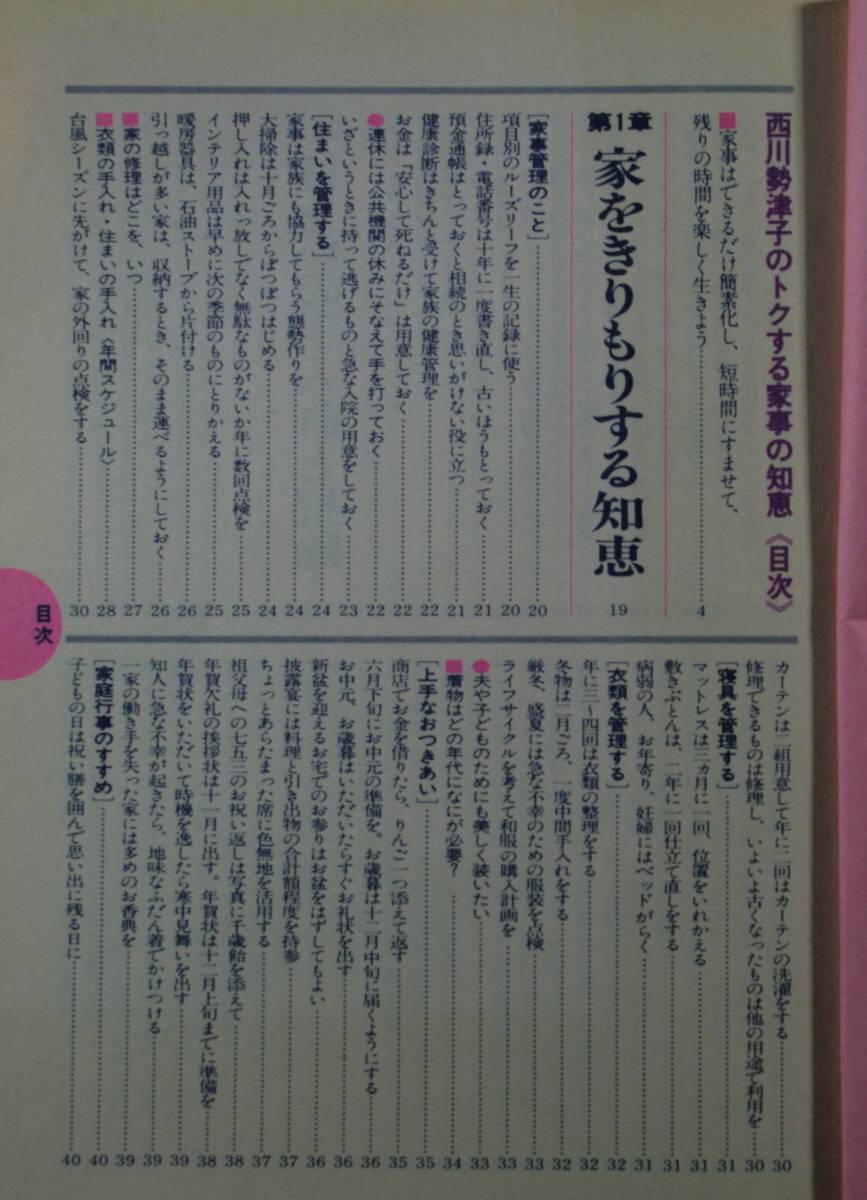 西川勢津子のトクする家事の知恵《目次》
■家事はできるだけ簡素化し、短時間にすませて、
残りの時間を楽しく生きよう……4
第1章 家をきりもりする知恵 19
［家事管理のこと］……20
項目別のルーズリーフを一生の記録に使う……20
住所録・電話番号は十年に一度書き直し、古いほうもとっておく……21
預金通帳はとっておくと相続のとき思いがけない役に立つ……21
健康診断はきちんと受けて家族の健康管理を……22
お金は「安心して死ねるだけ」は用意しておく……22
●連休には公共機関の休みにそなえて手を打っておく……22
いざというときに持って逃げるものと急な入院の用意をしておく……23
［住まいを管理する］……24
家事は家族にも協力してもらう態勢作りを……24
大掃除は十月ごろからぼつぼつはじめる……24
押し入れは入れっ放しでなく無駄なものがないか年に数回点検を……25
インテリア用品は早めに次の季節のものにとりかえる……25
暖房器具は、石油ストーブから片付ける……26
引っ越しが多い家は、収納するとき、そのまま運べるようにしておく……26
■家の修理はどこを、いつ……27
■衣類の手入れ・住まいの手入れ〈年間スケジュール〉……28
台風シーズンに先がけて、家の外回りの点検をする……30
カーテンは二組用意して年に二回はカーテンの洗濯をする……30
修理できるものは修理し、いよいよ古くなったものは他の用途で利用を……30
［寝具を管理する］……31
マットレスは三ヵ月に一回、位置をいれかえる……31
敷きぶとんは、二年に一回仕立て直しをする……31
病弱の人、お年寄り、妊婦にはベッドがらく……31
［衣類を管理する］……32
年に三～四回は衣類の整理をする……32
冬物は二月ごろ、一度中間手入れをする……32
厳冬、盛夏には急な不幸のための服装を点検……33
ライフサイクルを考えて和服の購入計画を……33
●夫や子どものためにも美しく装いたい……33
■着物はどの年代になにが必要？……34
［上手なおつきあい］……35
商店でお金を借りたら、りんご一つ添えて返す……35
六月下旬にお中元の準備を。お歳暮は十二月中旬に届くようにする……36
お中元、お歳暮はいただいたらすぐお礼状を出す……36
新盆を迎えるお宅でのお参りはお盆をはずしてもよい……36
披露宴には料理と引き出物の合計額程度を持参……37
ちょっとあらたまった席に色無地を活用する……37
祖父母への七五三のお祝い返しは写真に千歳飴を添えて……38
年賀欠礼の挨拶状は十一月に出す。年賀状は十二月上旬までに準備を……38
年賀状をいただいて時機を逸したら寒中見舞いを出す……39
知人に急な不幸が起きたら、地味なふだん着でかけつける……39
一家の働き手を失った家には多めのお香典を……39
［家庭行事のすすめ］……40
子どもの日は祝い膳を囲んで思い出に残る日に……40
目次